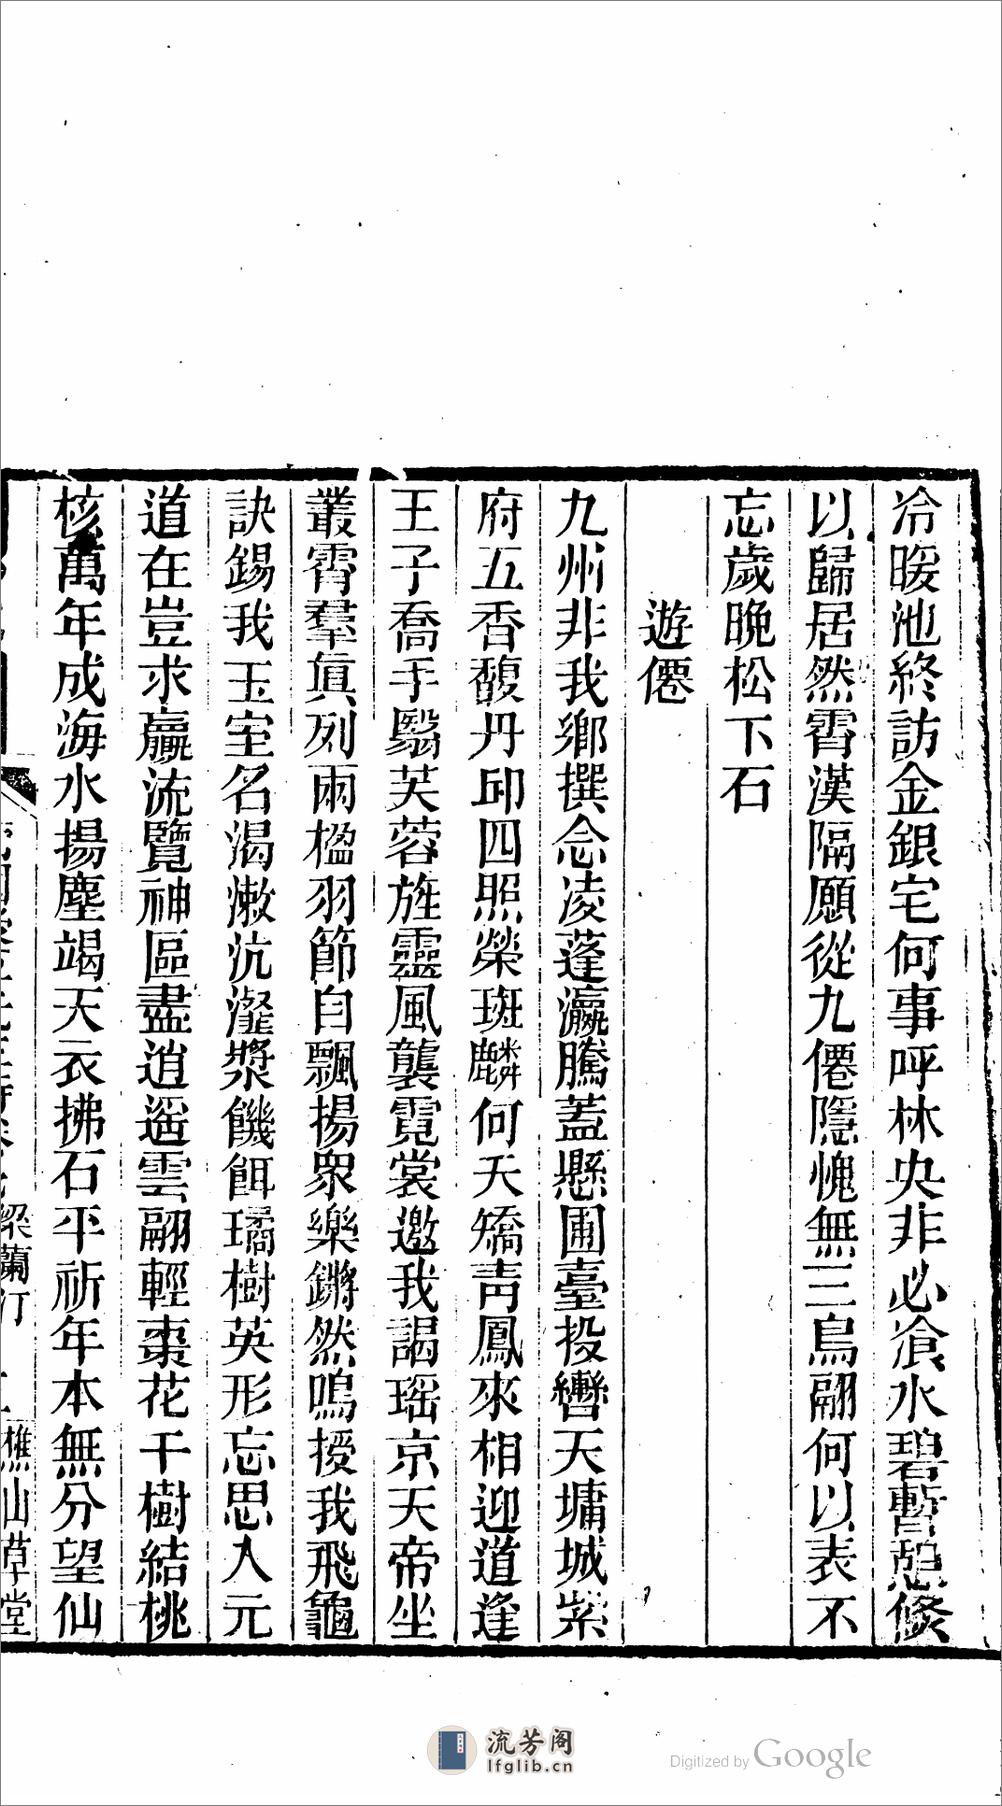 冷暖池終訪金銀宅何事呼林央非必飡水碧暫憩倐
以歸居然霄漢隔願從九僊隱愧無三鳥翮何以表不
忘歲晚松下石
遊僊
九州非我鄉撰念凌蓬瀛騰蓋懸圃臺投轡天墉城紫
府五香馥丹邱四照榮斑麟何夭矯青鳳來相迎道逢
王子喬手翳芙蓉旌靈風襲霓裳邀我謁瑶京天帝坐
叢霄羣眞列兩楹羽節自飄揚眾樂鏘然鳴授我飛龜
訣錫我玉室名渴漱沆瀣漿饑餌璚樹英形忘思入元
道在豈求贏流覽神區盡逍遥雲翮輕棗花千樹結桃
核萬年成海水揚塵竭天衣拂石平祈年本無分望仙
梁蘭汀
樵山草堂
流芳阁
lfglib.cn
Digitized by Google